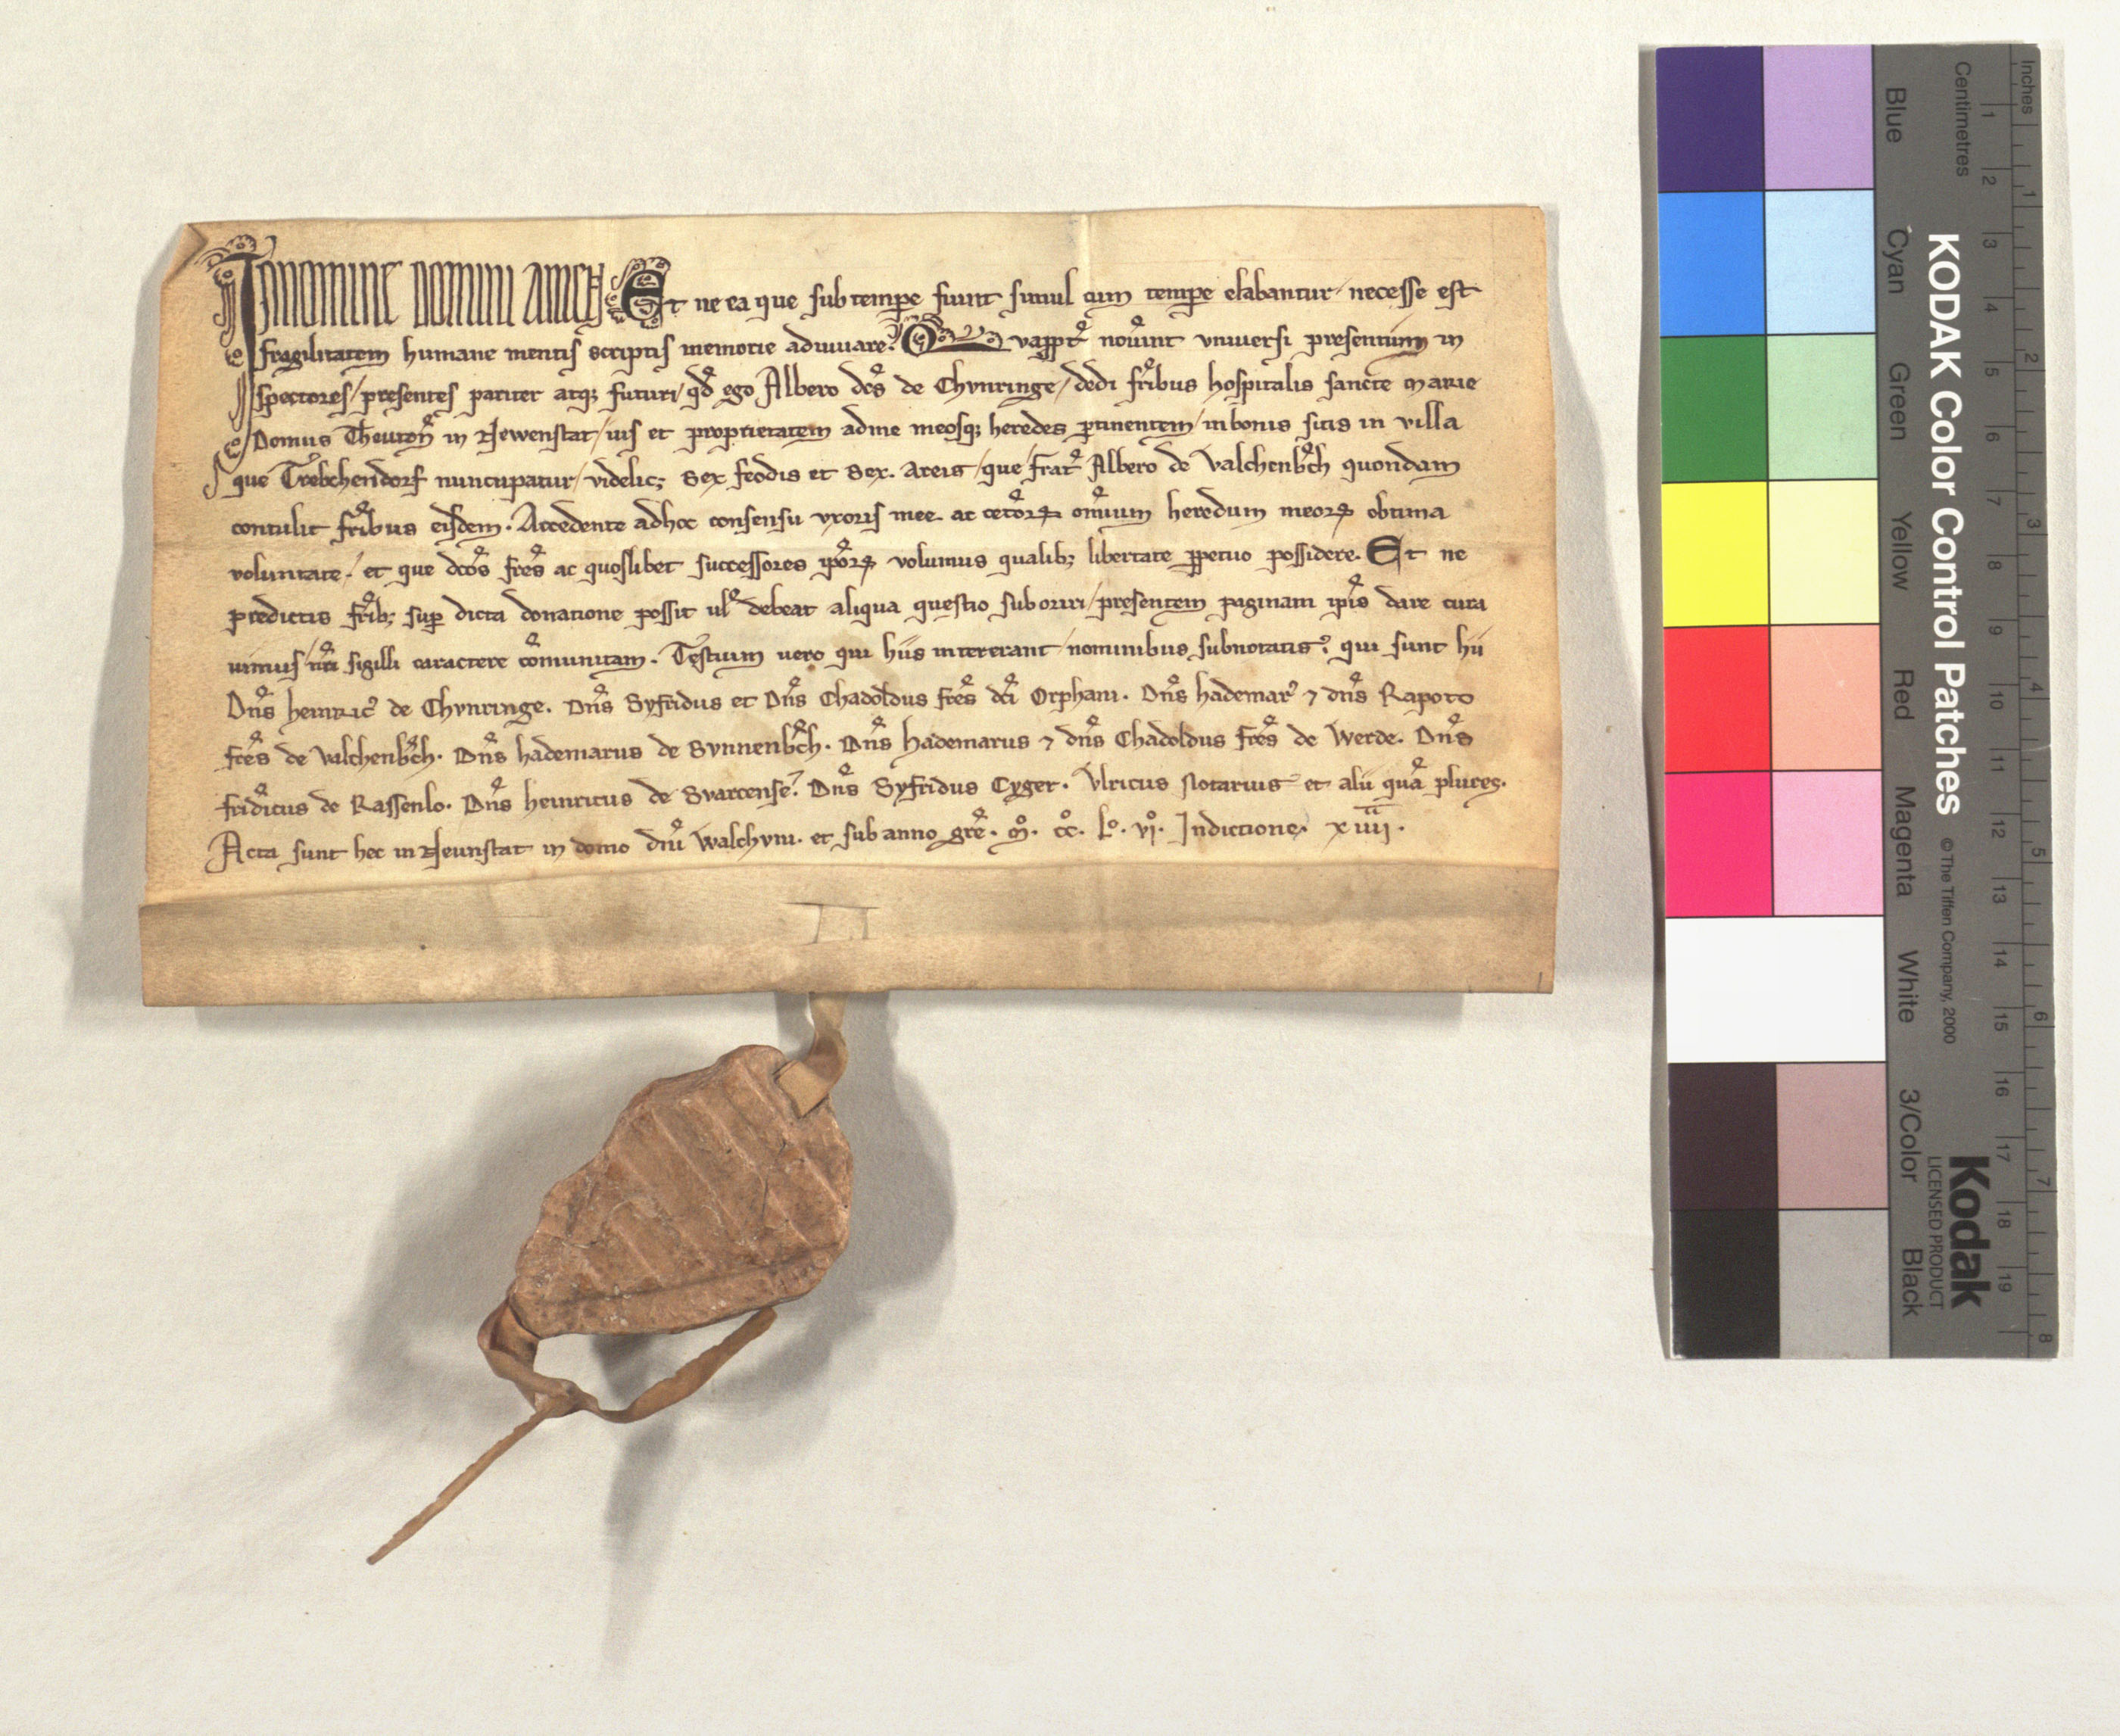 In nomine domini amen Et ne ea que sub tempe fiunt simul cum tempe elabantur / necesse est
fragilitatem humane mentis scriptis memorie adiuuare. Quapp͛t nou͛int vniuersi presentium in
spectores / presentes pariter atq; futuri / qd͛ ego Albero dc͛s de Chvnringe / dedi fr͛ibus hospitalis sancte marie
Domus Theuton͛ in Newenstat / ius et proprietatem ad me meosq; heredes ptinentem / in bonis sitis in villa
que Trebchendorf nuncupatur / videlic; sex feodis et sex. areis / que / frat͛ Albero de Valchenb͛ch quondam
contulit fr͛ibus eisdem. Accedente adhoc consensu vxoris mee ac cet͛oꝝ om͛ium heredum meoꝝ obtima
voluntate / et que dc͛os fr͛es ac quoslibet successores ip͛oꝝ volumus qualib; libertate ppetuo possidere. Et ne
predictis fr͛ib; sup dicta donatione possit ul͛ debeat aliqua questio suboriri / presentem paginam ip͛is dare cura
uimus / nr͛i sigilli caractere co͛munitam. Testium uero qui hiis intererant / nominibus subnotatis. qui sunt hii
Dn͛s heinric͛ de Chvnringe. Dn͛s Syfridus et Dn͛s Chadoldus fr͛es dc͛i Orphani. Dn͛s hademar͛ ⁊ dn͛s Rapoto
fr͛es de Valchenb͛ch. Dn͛s hademarus de Svnnenb͛ch. Dn͛s hademarus ⁊ dn͛s Chadoldus fr͛es de Werde. Dn͛s
frid͛icus de Rassenlo. Dn͛s heinricus de Svarcense. Dn͛s Syfridus Cyger. Vlricus Notarius et alii qua͛ plures.
Acta sunt hec in Neunstat in domo dn͛i Walchvni. et sub anno gr͛e. mͦ. ccͦ. Lͦ. viͦ. Indictione. xiiii.
Inches
Centimetres
1 2 3 4 5 6 7 8 9 10 11 12 13 14 15 16 17 18 19
1 2 3 4 5 6 7 8
KODAK Color Control Patches
© The Tiffen Company, 2000
Kodak
LICENSED PRODUCT
Blue Cyan Green Yellow Red Magenta White 3/Color Black